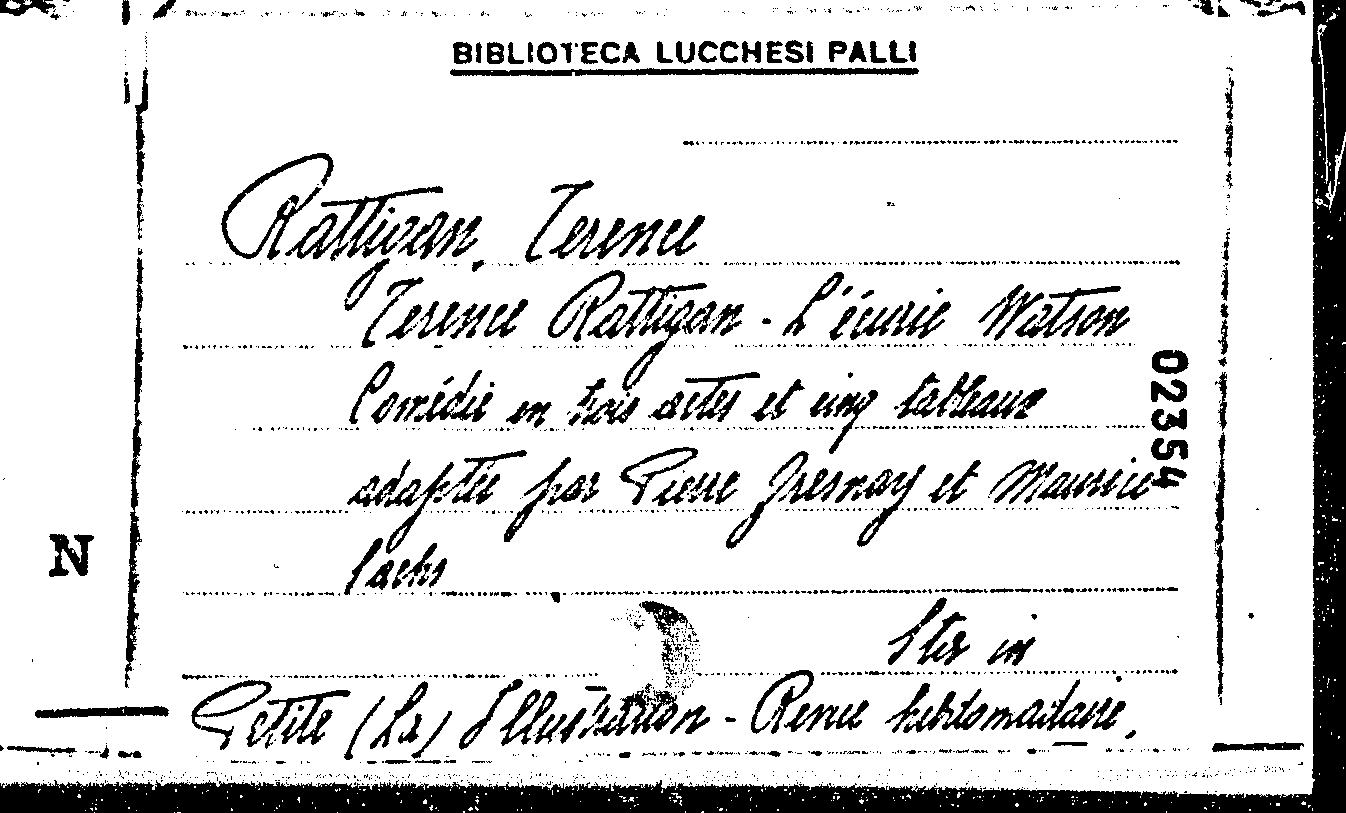 BIBLIOTECA LUCCHESI PALLI
Rattigan, Terence
Terence Rattigan - L'écurie Watson
Comédie en trois actes et cinq tableaux
adaptée par Pierre Fresnay et Maurice
Sachs
02354
N
Sta in
Petite (La) Illustration - Revue hebdomadaire,